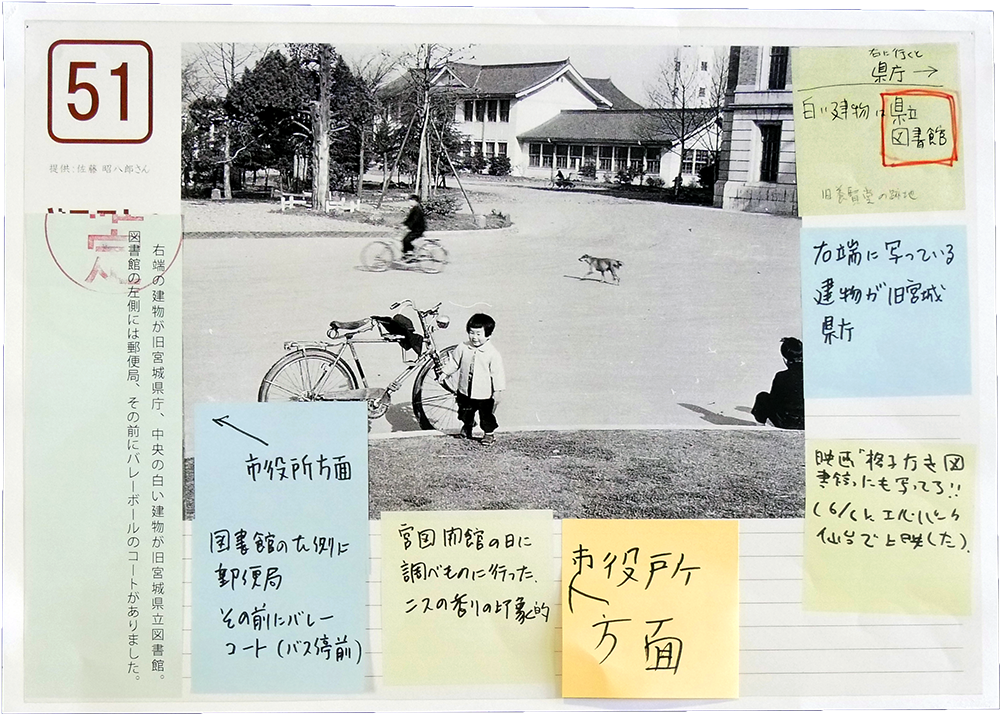 51
提供：佐藤 昭八郎さん
右端の建物が旧宮城県庁、中央の白い建物が旧宮城県立図書館。
図書館の左側には郵便局、その前にバレーボールのコートがありました。
右に行くと
県庁→
白い建物は県立
図書館
旧養賢堂の跡地
右端に写っている
建物が旧宮城
県庁
映画「格子なき図
書館」にも写ってる!!
(6/6に エル・パーク
仙台で上映した).
市役所方面
図書館の左側に
郵便局
その前にバレー
コート(バス停前)
宮図開館の日に
調べものに行った.
ニスの香りが印象的
市役所
方面